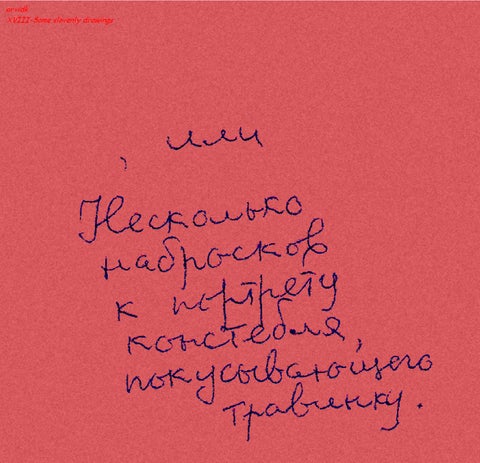 arvidk
XVIII-Some slovenly drawings
, или
Несколько
набросков
к портрету
констебля,
покусывающего
травинку.